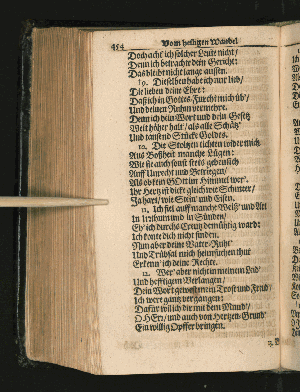 454 Vom heiligen Wandel
Doch acht ich solcher Leute nicht/
Denn ich betrachte dein Gericht:
Das bleibt nicht lange aussen.
9. Dieselben hab ich nur lieb/
Die lieben deine Ehre:
Daß ich in Gottes-Furcht mich üb'/
Und deinen Ruhm vermehre.
Denn ich dein Wort und dein Gesetz
Weit höher halt/ als alle Schätz'
Und tausend Stück Goldes.
10. Die Stoltzen tichten wider mich
Aus Boßheit manche Lügen:
Wie sie auch sonst stets gebräulich
Auff Unrecht und Betriegen/
Als ob kein GOtt im Himmel wer'.
Ihr Hertz ist dick gleich wie Schmeer/
Ja hart/ wie Stein und Eisen.
11. Ich fiel auff manche Weiß' und Art
In Irrthum und in Sünden/
Eh' ich durchs Creutz demütig ward:
Ich konte dich nicht finden.
Nun aber deine Vater-Ruht'
Und Trübsal mich heimsuchen thut
Erkenn' ich deine Rechte.
12. Wer' aber nicht in meinem Leid'
Und hefftigem Verlangen/
Dein Wort gewest mein Trost und Freud/
Ich were gantz vergangen:
Dafür will ich dir mit dem Munde/
O HErr/ und auch von Hertzen-Grund'
Ein willig Opffer bringen.